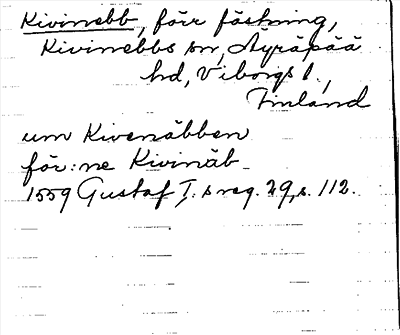 Kivinebb, förr fästning,
Kivinebbs sn, Äyräpää
hd, Viborgs l.,
Finland
um Kivenäbben
för: ne Kivinäb
1559 Gustaf I:s reg. 29, s. 112.